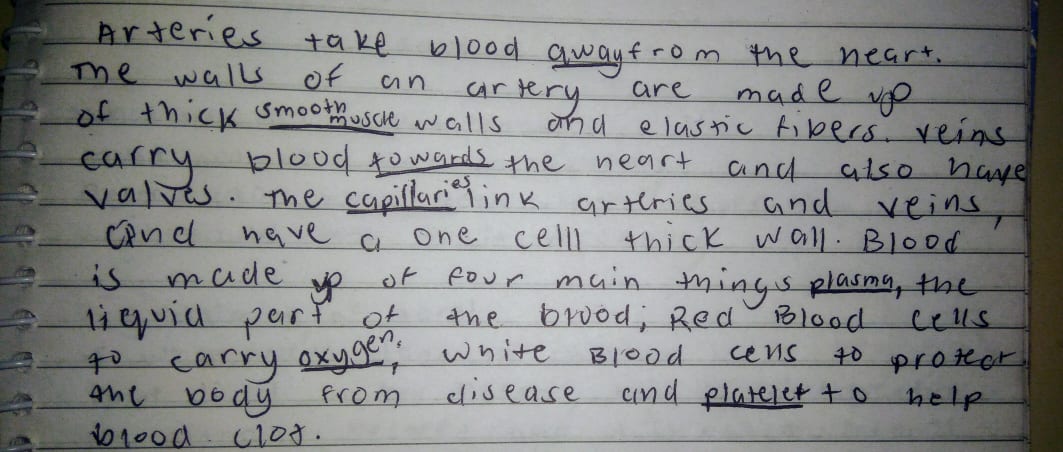 Arteries take blood away from the heart.
The walls of an artery are made up
of thick smooth muscle walls and elastic fibers. veins
carry blood towards the heart and also have
valves. The capillaries link arteries and veins,
and have a one celll thick wall. Blood
is made up of four main things plasma, the
liequid part of the blood; Red Blood cells
to carry oxygen; white Blood cells to protect
the body from disease and platelet to help
blood clot.